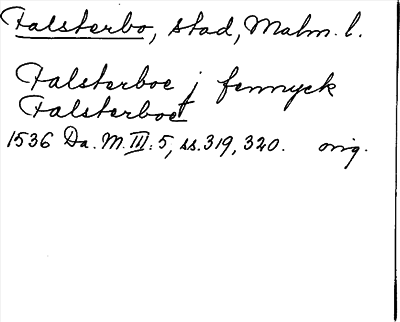 Falsterbo, stad, Malm. l.
Falsterboe j fennyck
Falsterboet
1536 Da. M. III: 5, ss. 319, 320. orig.